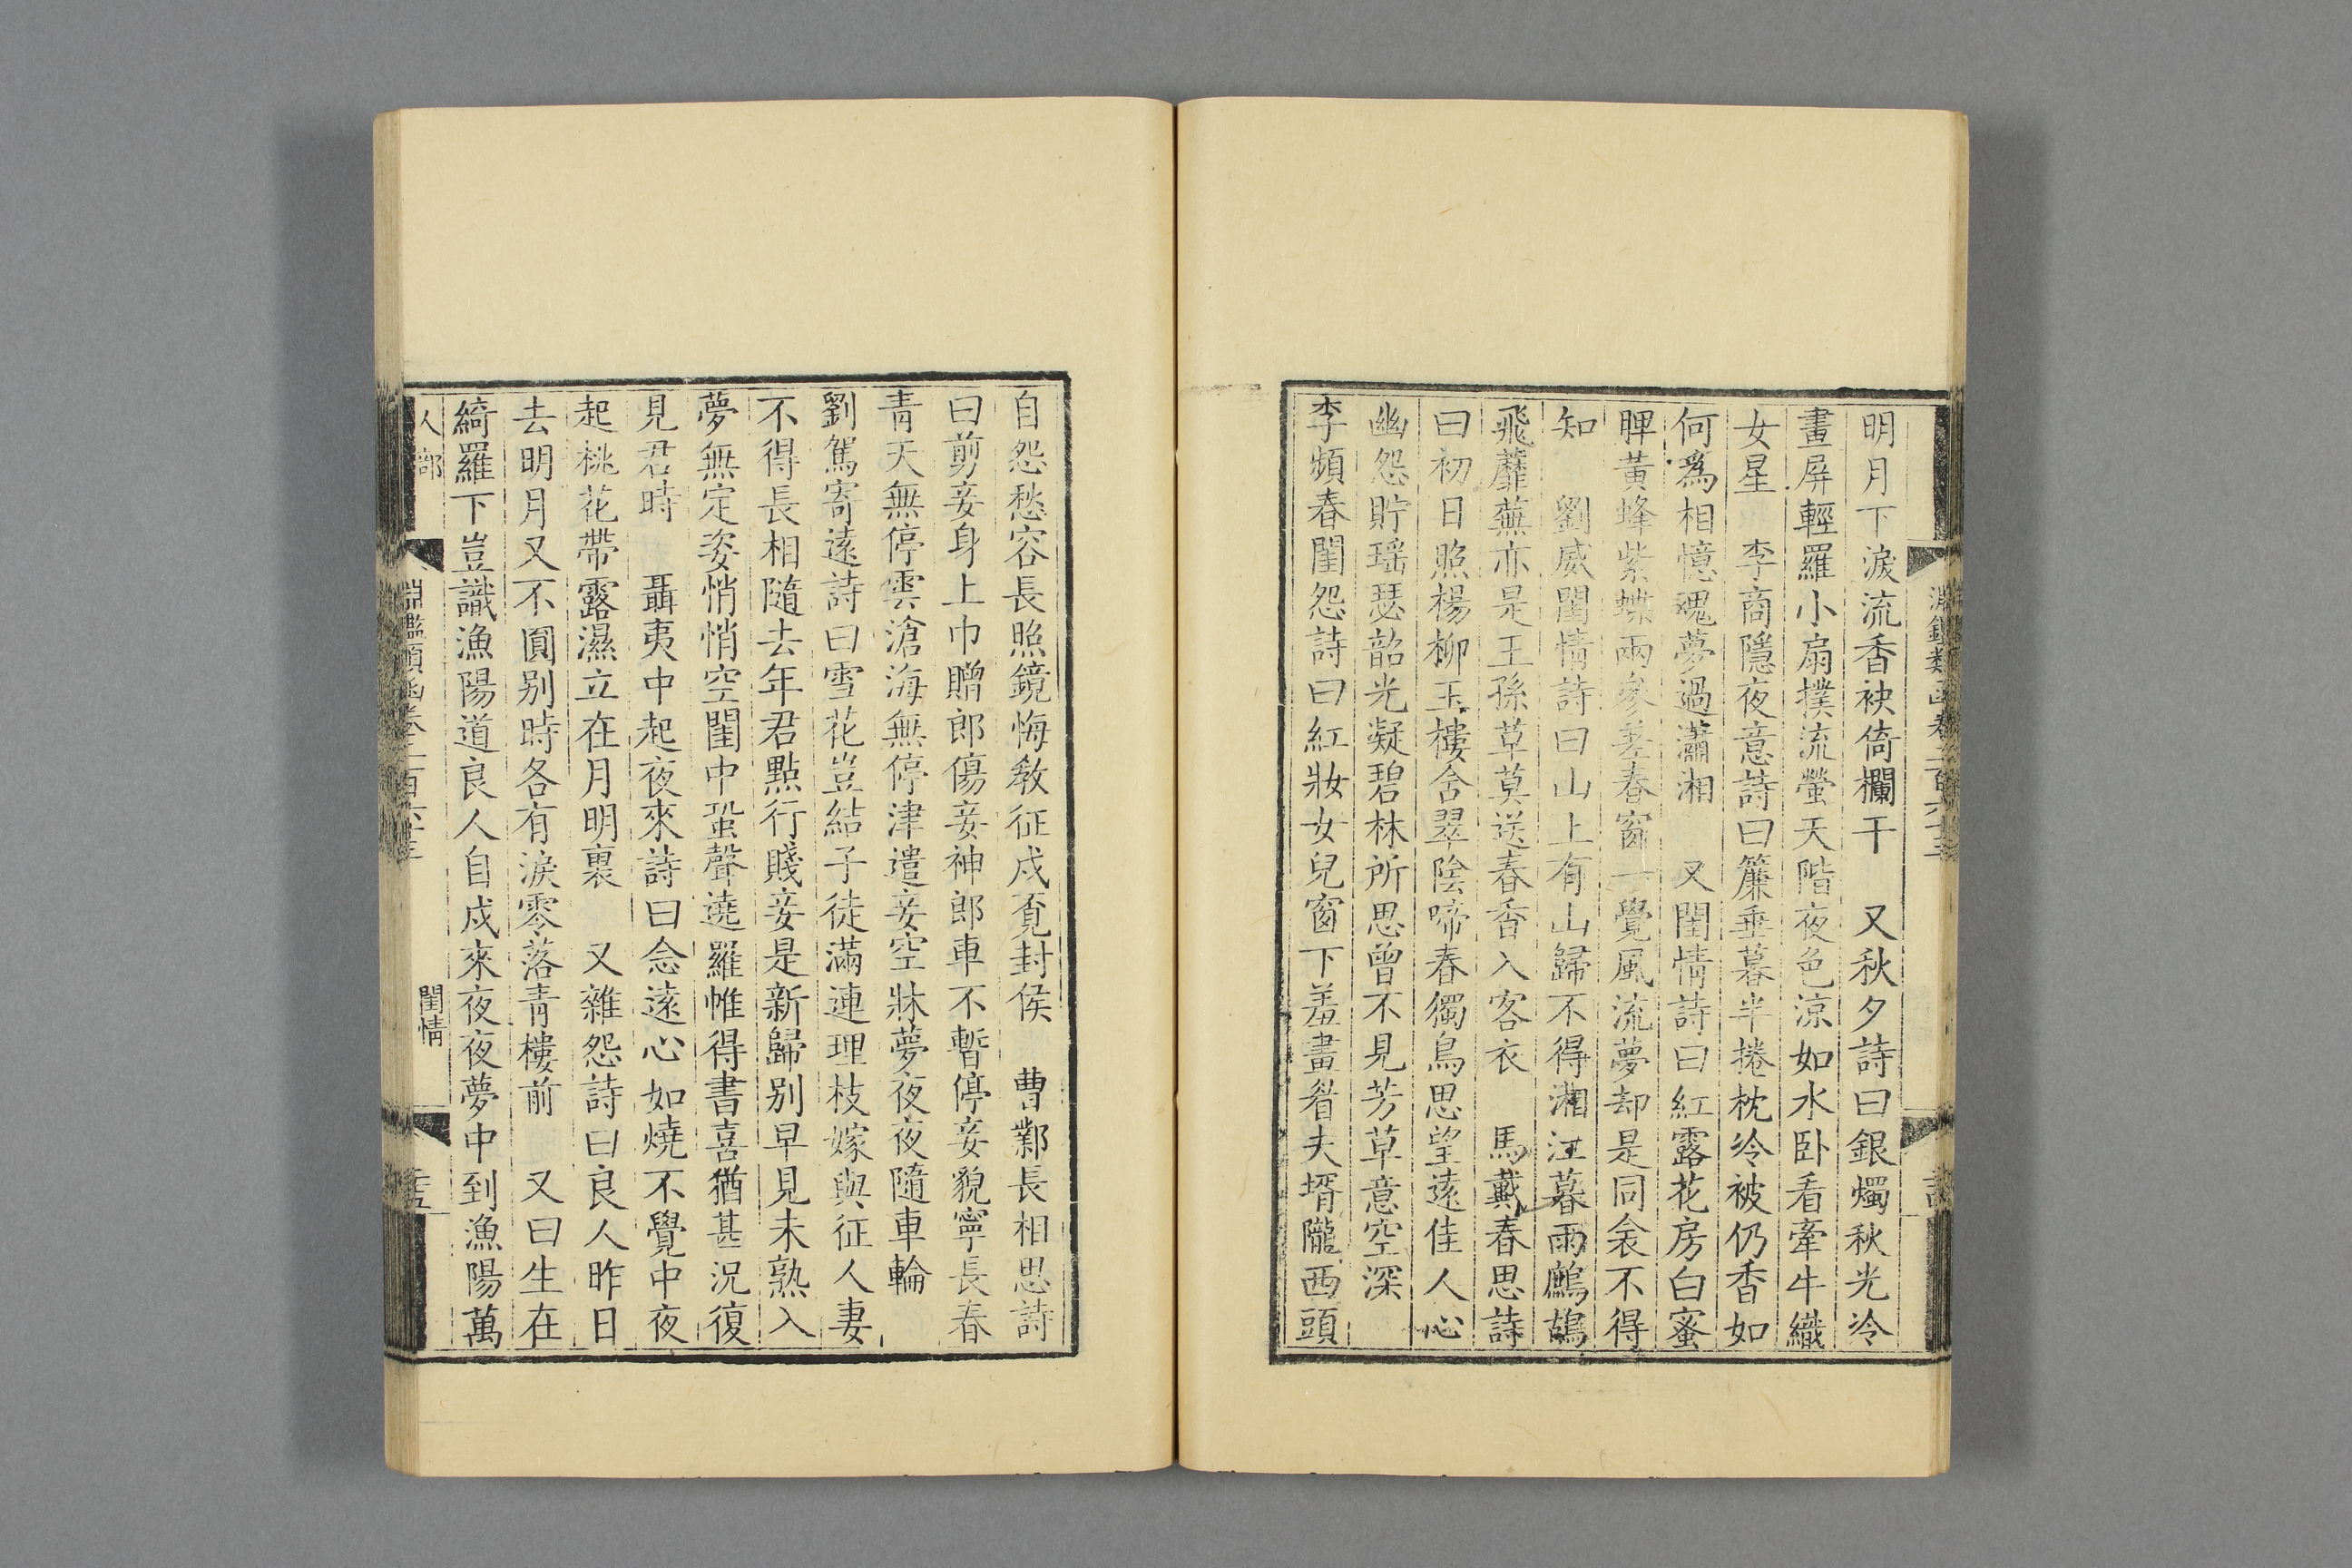 明月下淚流香袂倚欄干　又秋夕詩曰銀燭秋光冷
畫屏輕羅小扇撲流螢天階夜色凉如水卧看牽牛織
女星　李商隱夜意詩曰簾垂暮半捲枕冷被仍香如
何爲相憶魂夢過瀟湘　又閨情詩曰紅露花房白蜜
脾黃蜂紫蝶兩參差春窗一覺風流夢却是同衾不得
知　劉威閨情詩曰山上有山歸不得湘江暮雨鷓鴣
飛蘼蕪亦是王孫草莫送春香入客衣　馬戴春思詩
曰初日照楊柳玉樓含翠陰啼春獨鳥思望遠佳人心
幽怨貯瑶瑟韶光凝碧林所思曾不見芳草意空深
李頻春閨怨詩曰紅妝女兒窗下羞畫眉夫壻隴西頭
自怨愁容長照鏡悔教征戍覔封侯　曹鄴長相思詩
曰剪妾身上巾贈郎傷妾神郎車不暫停妾貌寧長春
青天無停雲滄海無停津遣妾空牀夢夜夜隨車輪
劉駕寄遠詩曰雪花豈結子徒滿連理枝嫁與征人妻
不得長相隨去年君點行賤妾是新歸别早見未熟入
夢無定姿悄悄空閨中蛩聲遶羅帷得書喜猶甚況復
見君時　聶夷中起夜來詩曰念遠心如燒不覺中夜
起桃花帶露濕立在月明裏　又雜怨詩曰良人昨日
去明月又不圓别時各有淚零落青樓前　又曰生在
綺羅下豈識漁陽道良人自戍來夜夜夢中到漁陽萬
人部
淵鑑類函卷二百六十三
閨情